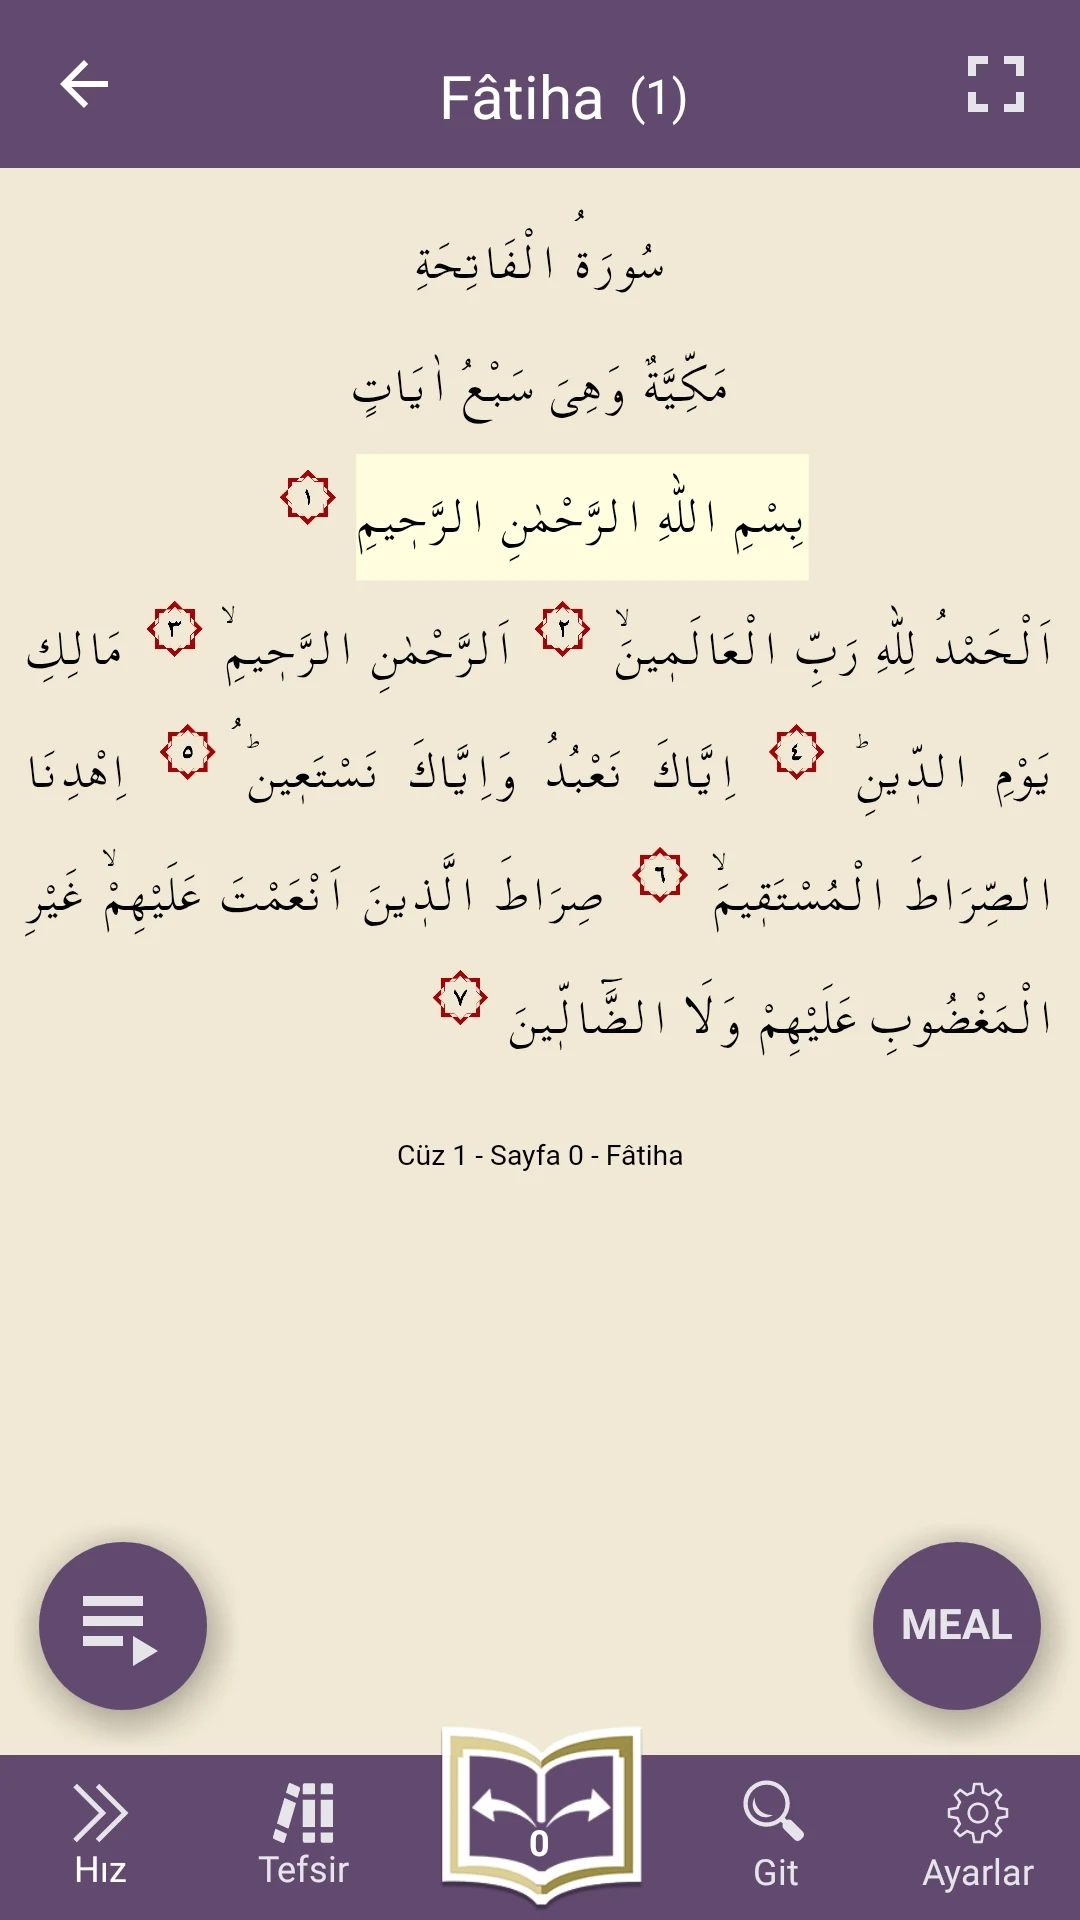 Fâtiha (1)
سُورَةُ الْفَاتِحَةِ
مَكِّيَّةٌ وَهِىَ سَبْعُ اٰيَاتٍ
بِسْمِ اللّٰهِ الرَّحْمٰنِ الرَّح۪يمِ ١
اَلْحَمْدُ لِلّٰهِ رَبِّ الْعَالَم۪ينَۙ ٢ اَلرَّحْمٰنِ الرَّح۪يمِۙ ٣ مَالِكِ
يَوْمِ الدّ۪ينِۜ ٤ اِيَّاكَ نَعْبُدُ وَاِيَّاكَ نَسْتَع۪ينُۜ ٥ اِهْدِنَا
الصِّرَاطَ الْمُسْتَق۪يمَۙ ٦ صِرَاطَ الَّذ۪ينَ اَنْعَمْتَ عَلَيْهِمْۙ غَيْرِ
الْمَغْضُوبِ عَلَيْهِمْ وَلَا الضَّٓالّ۪ينَ ٧
Cüz 1 - Sayfa 0 - Fâtiha
MEAL
Hız
Tefsir
0
Git
Ayarlar